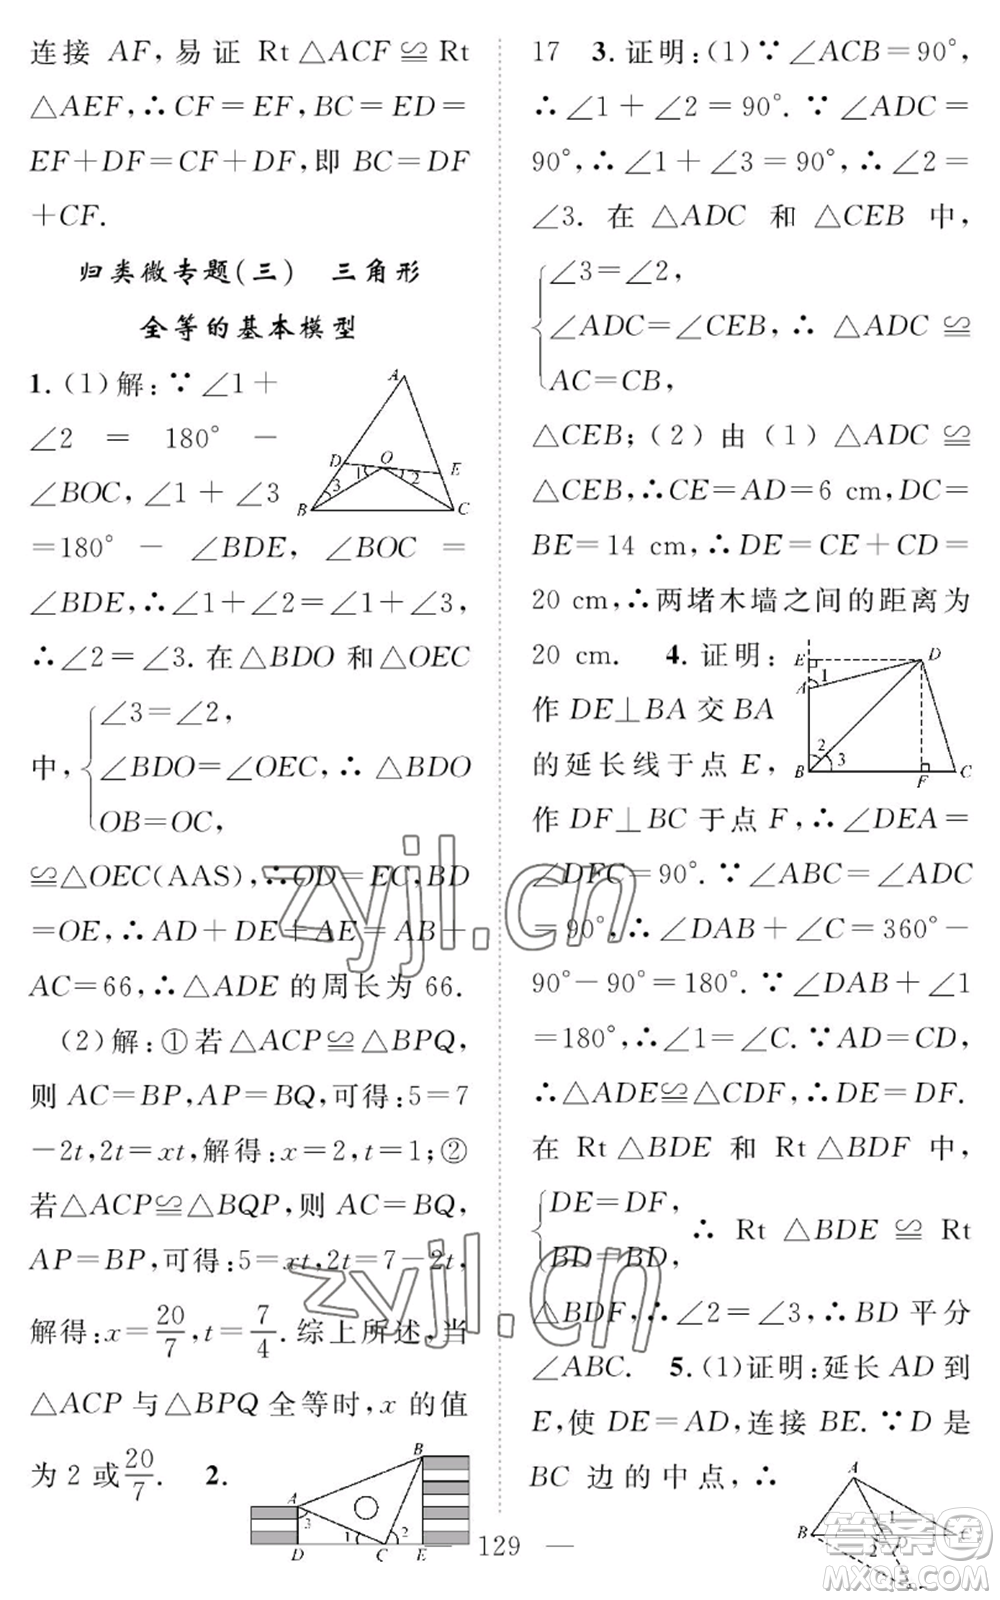 连接 AF,易证 Rt△ACF≌Rt
△AEF,∴CF=EF,BC=ED=
EF+DF=CF+DF,即 BC=DF
+CF.
归类微专题(三)　三角形
全等的基本模型
1. (1)解:∵∠1+
∠2 = 180° -
∠BOC,∠1+∠3
=180° - ∠BDE, ∠BOC =
∠BDE,∴∠1+∠2=∠1+∠3,
∴∠2=∠3. 在△BDO 和△OEC
中,{∠3=∠2,
∠BDO=∠OEC,∴△BDO
OB=OC,
≌△OEC(AAS),∴OD=EC,BD
=OE,∴AD+DE+AE=AB+
AC=66,∴△ADE 的周长为 66.
(2)解:①若△ACP≌△BPQ,
则 AC=BP,AP=BQ,可得:5=7
-2t,2t=xt,解得:x=2,t=1;②
若△ACP≌△BQP,则 AC=BQ,
AP=BP,可得:5=xt,2t=7-2t,
解得:x=20/7,t=7/4.综上所述,当
△ACP 与△BPQ 全等时,x 的值
为 2 或20/7. 2.
A
D
O
E
1
2
3
B
C
B
A
3
1
2
D
C
E
17 3. 证明:(1)∵∠ACB=90°,
∴∠1+∠2=90°. ∵∠ADC=
90°,∴∠1+∠3=90°,∴∠2=
∠3. 在 △ADC 和 △CEB 中,
{∠3=∠2,
∠ADC=∠CEB,∴ △ADC ≌
AC=CB,
△CEB;(2)由(1)△ADC≌
△CEB,∴CE=AD=6 cm,DC=
BE=14 cm,∴DE=CE+CD=
20 cm,∴两堵木墙之间的距离为
20 cm. 4. 证明:
作 DE⊥BA 交 BA
的延长线于点 E,
作 DF⊥BC 于点 F,∴∠DEA=
∠DFC=90°. ∵∠ABC=∠ADC
=90°,∴∠DAB+∠C=360°-
90°-90°=180°. ∵∠DAB+∠1
=180°,∴∠1=∠C. ∵AD=CD,
∴△ADE≌△CDF,∴DE=DF.
在 Rt△BDE 和 Rt△BDF 中,
{DE=DF,
BD=BD,
∴ Rt △BDE ≌ Rt
△BDF,∴∠2=∠3,∴BD 平分
∠ABC. 5. (1)证明:延长 AD 到
E,使 DE=AD,连接 BE. ∵D 是
BC 边的中点,∴
E
D
A
1
2
3
B
F
C
A
B
1
2
D
C
— 129 —
zyjl.cn
zyjl.cn
答案圈